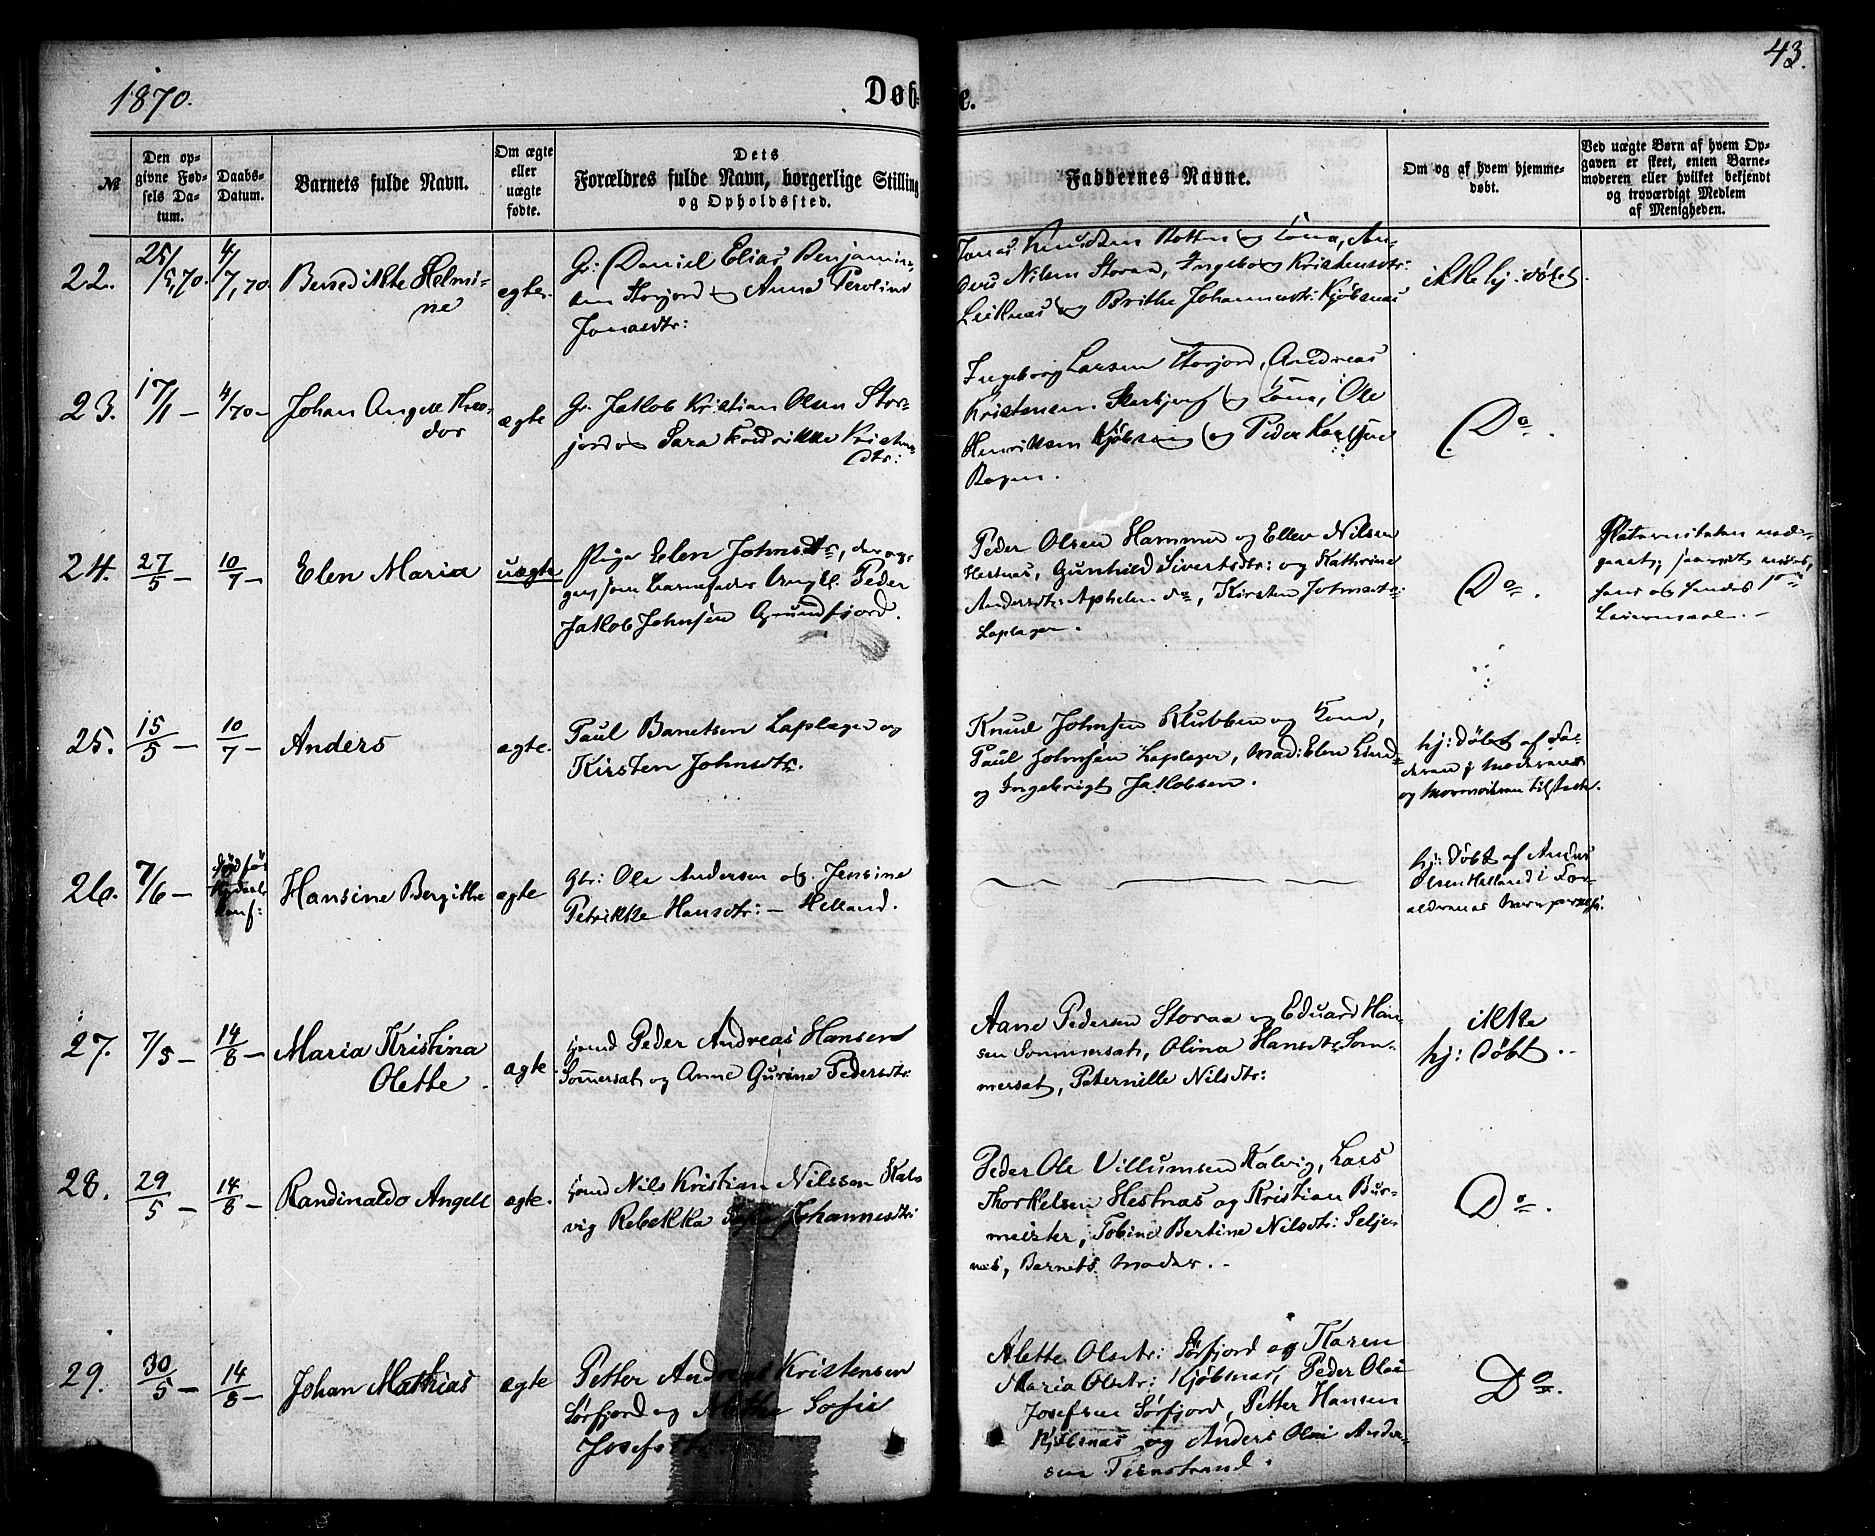 43.
1870.
Døb-
te.
№
Den op-
givne Fød-
sels Da-
tum.
Daabs-
Datum.
Barnets fulde Navn.
Om ægte
eller
uægte
fødte.
Dets
Forældres fulde Navn, borgerlige Stilling
og Opholdssted.
Faddernes Navne.
Om og af hvem hjemme-
døbt.
Ved uægte Børn af hvem Op-
gaven er skeet, enten Barne-
moderen eller hvilket bekjendt
og troværdigt Medlem
af Menigheden.
22.
25/
5,70.
4/
7,70
Benedikte Helmi-
ne
egte.
Gr: Daniel Elias Benjamin-
sen Storjord og Anne Peroline
Jonasdtr:
Jonas Knudsen Rotten og Kone, An-
ders Nilsen Storaa, Ingeborg Kristensdtr:
Leiknes og Brithe Johannesdtr: Kjøbsnæs
ikke hj: døbt.
23.
17/1 –
4/70 –
Johan Angell Theo-
dor
ægte
Gr. Jakob Kristian Olsen Stor-
jord og Sara Fredrikke Kristens
dtr:
Ingeborg Larsen Storjord, Andreas
Kristensen og Kone, Ole
Henriksen Kjøbsnæs og Peder Karlsen
Bogen.
Do.
24.
27/5 –
10/7 –
Elen Maria
uægte
Pige Elen Johnsdtr, der op-
gav som Barnefader Ungk. Peder
Jakob Johnsen Grundfjord.
Peder Olsen Hammer og Ellen Nilsen
Hestnæs, Gunhild Sivertsdtr: og Kathrine
Andersdtr: Kirsten Johnsdtr:
Laplager.
Do.
hans og hendes 1ste
Leiermaal. –
25.
15/5 –
10/7 –
Anders
ægte.
Paul Banetsen Laplager og
Kirsten Johnsdtr.
Knud Johnsen Klubben og Kone,
Paul Johnsen Laplager, Mad: Elen Lind
og Ingebrigt Jakobsen.
hj: døbt af Fa-
deren i Moderens
og Mormoderens tilstede.
26.
7/6 –
død før
Hansine Bergithe
ægte
Gbr: Ole Andersen og Jensine
Petrikke Hansdtr: – Helland.
hj: døbt af Anders
Olsen Helland i For-
ældrenes
27.
7/5 –
14/8 –
Maria Kristina
Olette.
ægte.
Gmd Peder Andreas Hansen
Sommersæt og Anne Gurine Pedersdtr:
Aane Pedersen Storaa og Eduard Han-
sen Sommersæt, Olina Hansdtr Som-
mersæt, Peternille Nilsdtr:
ikke
hj: døbt. –
28.
29/5 –
14/8 –
Randinaldo Angell
ægte.
Gmd Nils Kristian Nilssen Kal-
vig Rebekka Sofie Johannesdtr:
Peder Ole Villumsen Kalvig, Lars
Thorkelsen Hestnæs og Kristian Bur-
meister, Tobine Bertine Nilsdtr: Selje-
næs, Barnets Moder. –
Do.
29.
30/5 –
14/8 –
Johan Mathias
ægte
Petter Andreas Kristensen
Sørfjord og Sofie
Josefsdtr
Alette Olsdtr: Sørfjord og Karen
Maria Olsdtr: Kjøbsnæs, Peder Olai
Josefsen Sørfjord, Petter Hansen
Kjøbsnæs og Anders Olai Ander-
sen Ternstrand.
Do.